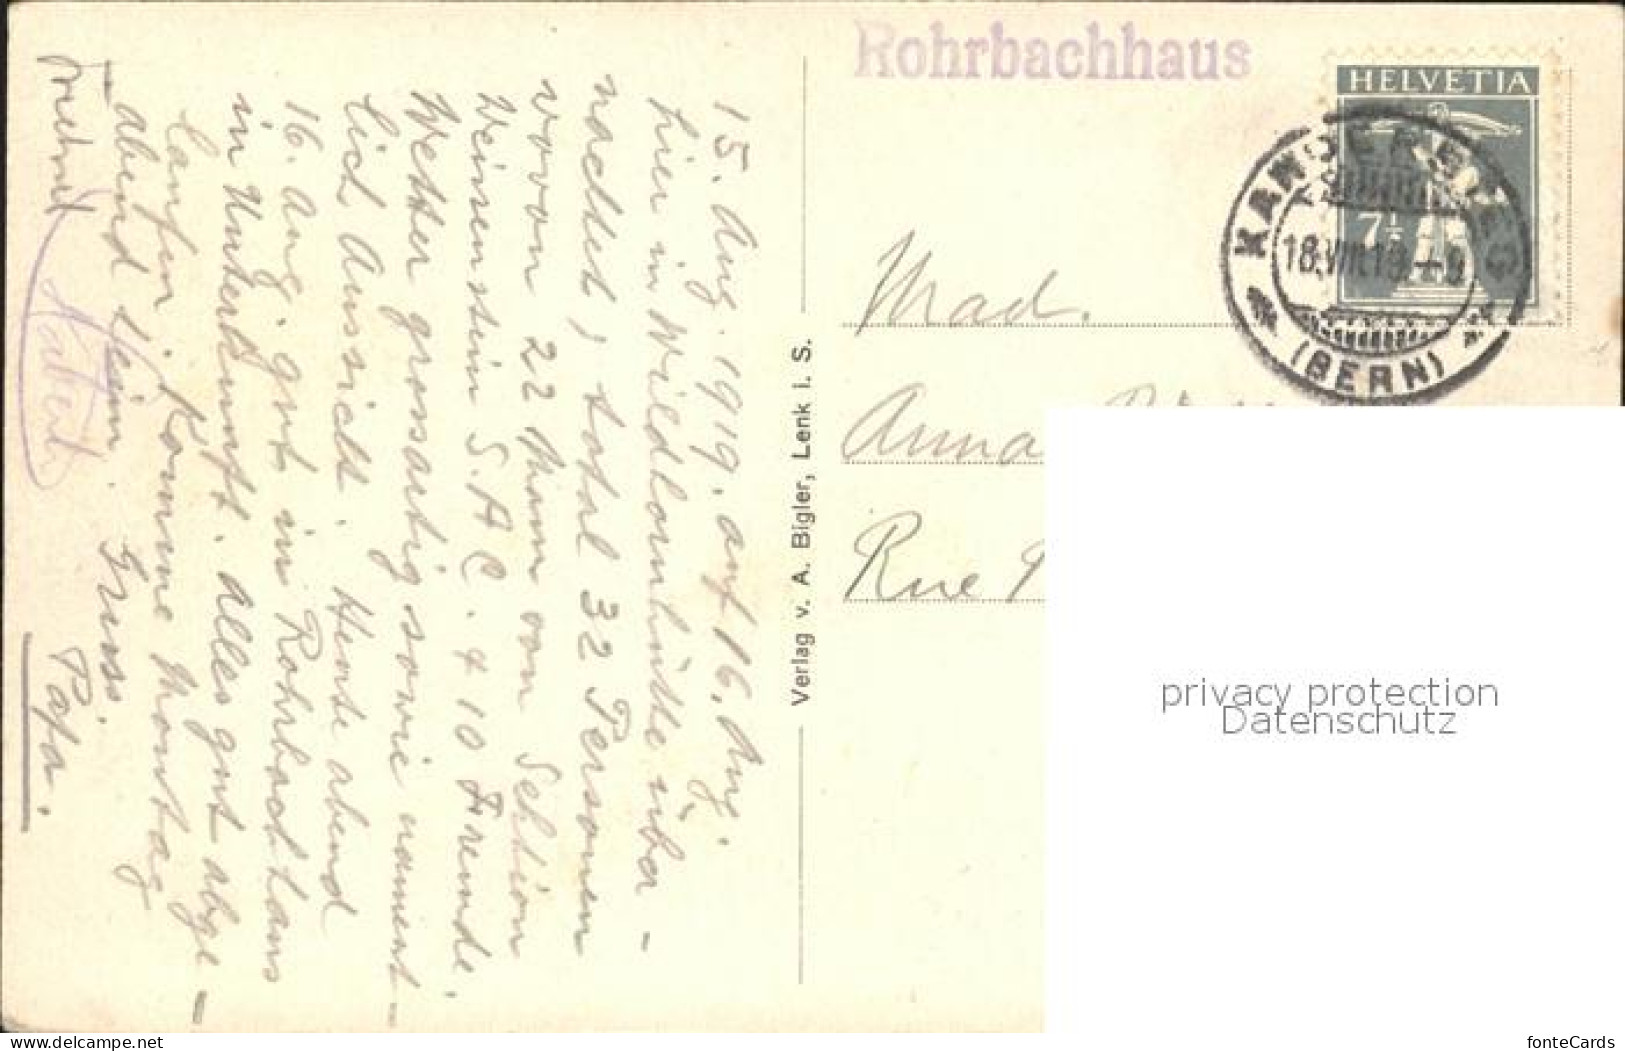 15. Aug. 1919. auf 16. Aug.
hier in Wildhornhütte über-
nachtet, total 32 Personen
wovon 22 Mann von Sektion
Weissenstein S.A.C. + 10 Fremde.
Wetter grossartig sowie nament-
lich Aussicht. Heute abend
16. Aug. gut in Rohrbachhaus
in Unterkunft. alles gut abge-
laufen. Komme Montag
abend heim. Gruss.
Papa.
Verlag v. A. Bigler, Lenk i. S.
Rohrbachhaus
HELVETIA
7½
KANDERSTEG
18.VIII.19.-9
(BERN)
Mad.
Anna
Rue
privacy protection
Datenschutz
www.delcampe.net
fonteCards